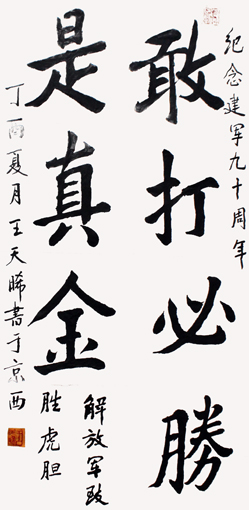 纪念建军九十周年
敢打必勝
是真金
解放军
胜虎胆
丁酉夏月王天晞書于京西